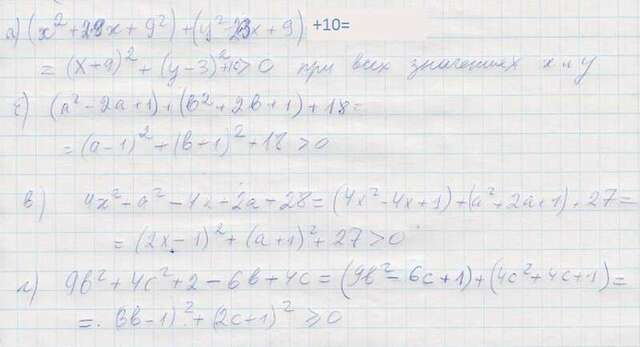 а) (x² + 29x + 9²) + (y² - 23x + 9) +10=
= (x+9)² + (y-3)²+10>0 при всех значениях x и y
б) (a² - 2a + 1) + (b² + 2b + 1) + 18 =
= (a-1)² + (b+1)² + 18 >0
в) 4x² + a² - 4x + 2a + 28 = (4x² - 4x + 1) + (a² + 2a + 1) + 27 =
= (2x - 1)² + (a+1)² + 27 > 0
г) 9b² + 4c² + 2 - 6b + 4c = (9b² - 6c + 1) + (4c² + 4c + 1) =
= (3b - 1)² + (2c+1)² ≥ 0